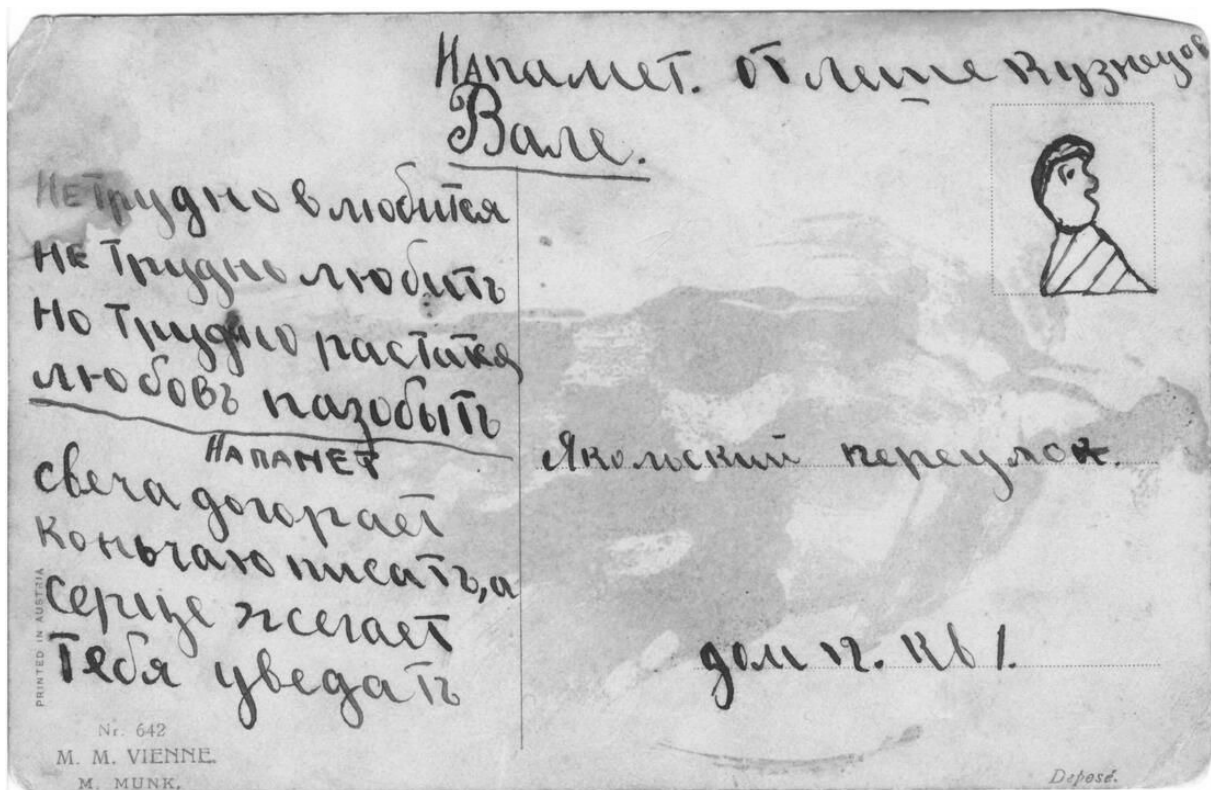 Напамет. от леше Кузнецов
Вале.
Не трудно влюбится
не трудно любить
Но трудно растатся
любовь пазобыть
Напамет
свеча догорает
коньчаю писать, а
серце жегает
Тебя уведать
Якольский переулок.
дом 12. кв 1.
PRINTED IN AUSTRIA
Nr. 642
M. M. VIENNE.
M. MUNK.
Deposé.